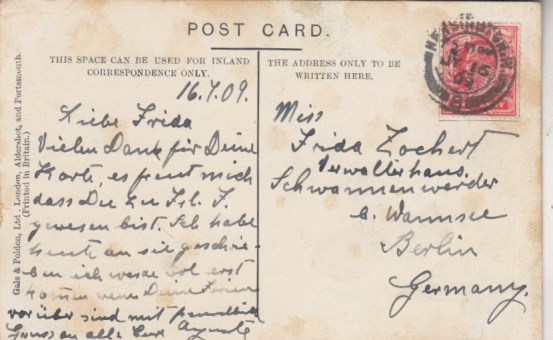 POST CARD.
THIS SPACE CAN BE USED FOR INLAND
CORRESPONDENCE ONLY.
THE ADDRESS ONLY TO BE
WRITTEN HERE.
Gale & Polden, Ltd., London, Aldershot, and Portsmouth.
(Printed in Britain.)
16.7.09.
Liebe Frida
Vielen Dank für Deine
Karte, es freut mich
dass Du zu Frl. F.
gewesen bist. Ich habe
heute an sie geschrie-
ben ich werde wol erst
kommen wenn Deine Ferien
vorüber sind mit freundlich
Gruss an alle Eure Auguste
Miss
Frida Zochert
Verwalterhaus.
Schwannenwerder
b. Wannsee
Berlin
Germany.